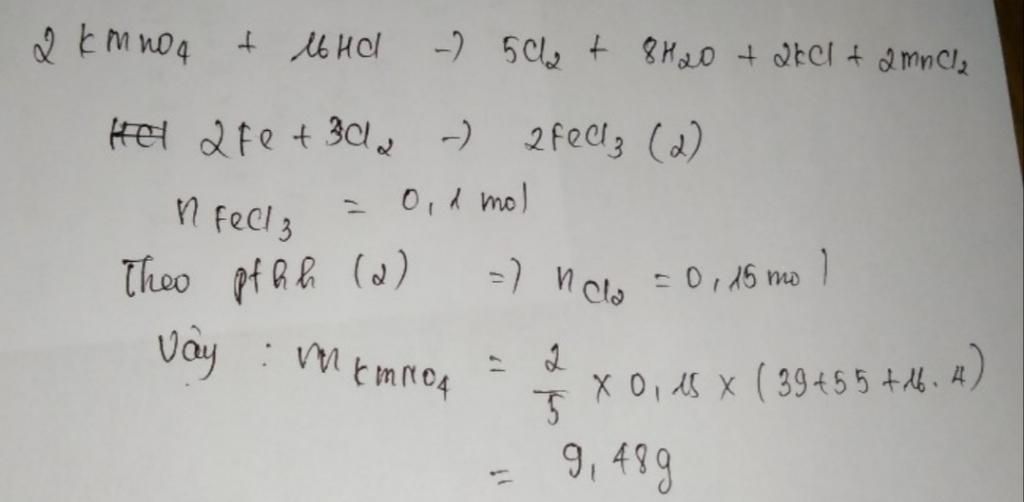 2 KMnO4 + 16HCl -> 5Cl2 + 8H2O + 2KCl + 2MnCl2
2Fe + 3Cl2 -> 2FeCl3 (2)
n FeCl3 = 0,1 mol
Theo pthh (2) => n Cl2 = 0,15 mol
Vậy : m KMnO4 = 2/5 x 0,15 x (39+55+16.4)
= 9,48g